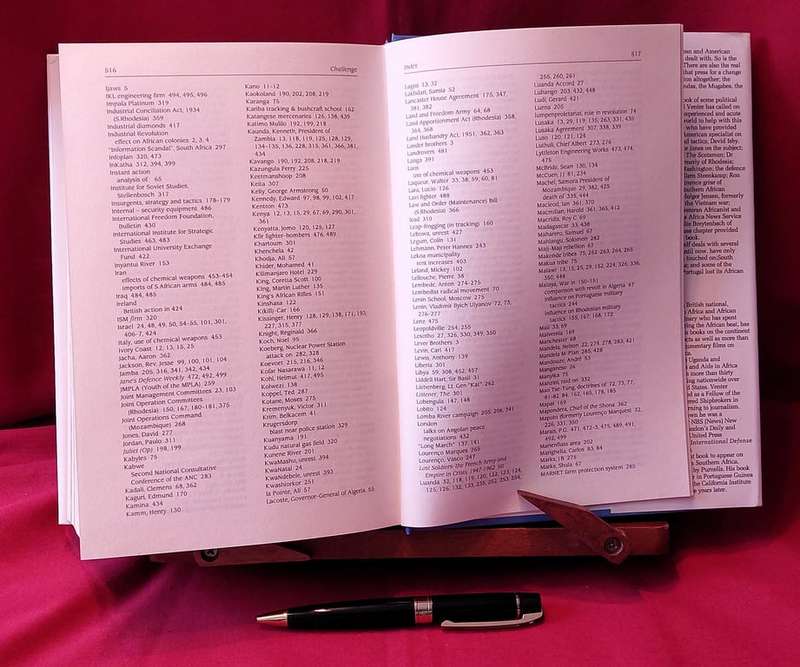 516
Challenge
Ijaws 5
IKL engineering firm 494, 495, 496
Impala Platinum 319
Industrial Conciliation Act, 1934
(S.Rhodesia) 359
Industrial diamonds 417
Industrial Revolution
effect on African colonies 2, 3, 4
"Information Scandal", South Africa 297
Infoplan 320, 473
Inkatha 312, 394, 399
Instant action
analysis of 65
Institute for Soviet Studies,
Stellenbosch 317
Insurgents, strategy and tactics 178–179
Internal – security equipment 486
International Freedom Foundation,
Bulletin 430
International Institute for Strategic
Studies 463, 483
International University Exchange
Fund 422
Inyantui River 153
Iran
effects of chemical weapons 453–454
imports of S.African arms 484, 485
Iraq 484, 485
Ireland
British action in 424
ISM firm 320
Israel 24, 48, 49, 50, 54–55, 101, 301,
406–7, 424
Italy, use of chemical weapons 453
Ivory Coast 12, 13, 15, 25
Jacha, Aaron 362
Jackson, Rev. Jesse 99, 100, 101, 104
Jamba 205, 316, 341, 342, 434
Jane's Defence Weekly 472, 492, 499
JMPLA (Youth of the MPLA) 259
Joint Management Committees 23, 103
Joint Operation Committees
(Rhodesia) 150, 167, 180–181, 375
Joint Operations Command
(Mozambique) 268
Jones, David 277
Jordan, Paulo 311
Juliet (Op) 198, 199
Kabyles 75
Kabwe
Second National Consultative
Conference of the ANC 283
Kadali, Clemens 68, 362
Kaguri, Edmund 170
Kamina 434
Kamm, Henry 130
Kano 11–12
Kaokoland 190, 202, 208, 219
Karanga 75
Kariba tracking & bushcraft school 162
Katangese mercenaries 126, 138, 439
Katimo Mulilo 192, 199, 218
Kaunda, Kenneth, President of
Zambia 13, 118, 119, 125, 128, 129,
134–135, 136, 228, 315, 361, 366, 381,
434
Kavango 190, 192, 208, 218, 219
Kazungula Ferry 225
Keetmanshoop 208
Keita 307
Kelly, George Armstrong 60
Kennedy, Edward 97, 98, 99, 102, 417
Kentron 473
Kenya 12, 13, 15, 29, 67, 69, 290, 301,
361
Kenyatta, Jomo 120, 125, 127
Kfir fighter-bombers 476, 489
Khartoum 301
Khenchela 42
Khodja, Ali 57
Khider, Mohamed 41
Kilimanjaro Hotel 229
King, Coretta Scott 100
King, Martin Luther 135
King's African Rifles 151
Kinshasa 122
K(ikill)-Car 166
Kissinger, Henry 128, 129, 138, 171, 193,
227, 315, 377
Knight, Reginald 366
Koch, Noel 95
Koeberg, Nuclear Power Station
attack on 282, 328
Koevoet 215, 216, 346
Kofar Nasarawa 11, 12
Kohl, Helmut 417, 495
Kolwezi 138
Koppel, Ted 287
Kotane, Moses 275
Kremenyuk, Victor 311
Krim, Belkacem 41
Krugersdorp
blast near police station 329
Kuanyama 191
Kudu natural gas field 320
Kunene River 201
KwaMashu, unrest 394
KwaNatal 24
KwaNdebele, unrest 393
Kwashiorkor 251
la Pointe, Ali 57
Lacoste, Governor-General of Algeria 55
Index
517
Lagos 13, 32
Lakhdari, Samia 52
Lancaster House Agreement 175, 347,
381, 382
Land and Freedom Army 64, 68
Land Apportionment Act (Rhodesia) 358,
364, 368
Land Husbandry Act, 1951, 362, 363
Lander Brothers 3
Landrovers 481
Langa 391
Laos
use of chemical weapons 453
Laqueur, Walter 33, 38, 59, 60, 81
Lara, Lucio 126
Lari killings 488
Law and Order (Maintenance) Bill
(S.Rhodesia) 366
lead 310
Leap-frogging (in tracking) 160
Lebowa, unrest 427
Legum, Colin 131
Lehmann, Peter Hannes 243
Lekoa municipality
rent increases 403
Leland, Mickey 102
Lellouche, Pierre 38
Lembede, Anton 274–275
Lembedist radical movement 70
Lenin School, Moscow 275
Lenin, Vladimir Ilyich Ulyanov 72, 73,
276–277
Lenz 475
Leopoldville 254, 255
Lesotho 27, 326, 330, 349, 350
Lever Brothers 3
Levin, Carl 417
Lewis, Anthony 139
Liberia 301
Libya 59, 308, 452, 457
Liddell Hart, Sir Basil 31
Liebenberg, Lt Gen "Kat" 262
Listener, The 301
Lobengula, 147, 148
Lobito 124
Lomba River campaign 205, 206, 341
London
talks on Angolan peace
negotiations 432
"Long March" 137, 141
Lourenço Marques 265
Lourenço, Vasco 247
Lost Soldiers: The French Army and
Empire in Crisis, 1947–1962 60
Luanda 32, 118, 119, 120, 122, 123, 124,
125, 126, 132, 133, 238, 252, 253, 254,
256, 260, 261
Luanda Accord 27
Lubango 203, 432, 448
Ludi, Gerard 421
Luena 205
lumpenproletariat, role in revolution 74
Lusaka 13, 29, 119, 135, 263, 331, 435
Lusaka Agreement 307, 338, 339
Luso 120, 121, 124
Luthuli, Chief Albert 273, 276
Lyttleton Engineering Works 473, 474,
475
McBride, Sean 130, 134
McCuen, JJ 81, 234
Machel, Samora President of
Mozambique 29, 382, 425
death of 335, 444
Macleod, Ian 361, 370
Macmillan, Harold 361, 365, 412
Macridis, Roy C 69
Madagascar 33, 438
Maharero, Samuel 67
Mahlangu, Solomon 282
Maji-Maji rebellion 67
Makonde tribes 75, 262, 263, 264, 265
Makua tribe 75
Malawi 13, 15, 25, 29, 152, 224, 326, 336,
350, 448
Malaya, War in 150–151
comparison with revolt in Algeria 47
influence on Portuguese military
tactics 244
influence on Rhodesian military
tactics 155, 167, 168, 172
Mali 33, 69
Malvernia 169
Manchester 68
Mandela, Nelson 22, 274, 278, 283, 421
Mandela M-Plan 285, 428
Mandouze, André 53
Manganese 26
Manyika 75
Manzini, raid on 332
Mao Tse-Tung, doctrines of 72, 73, 77,
81–82, 84, 162, 165, 178, 185
Mapai 169
Mapondera, Chief of the Shona 362
Maputo (formerly Lourenço Marques) 32,
226, 331, 350
Marais, P.G. 471, 472–3, 475, 489, 491,
492, 499
Marienfluss area 202
Marighella, Carlos 83, 84
Marks, J.B. 275
Marks, Shula 67
MARNET farm protection system 285